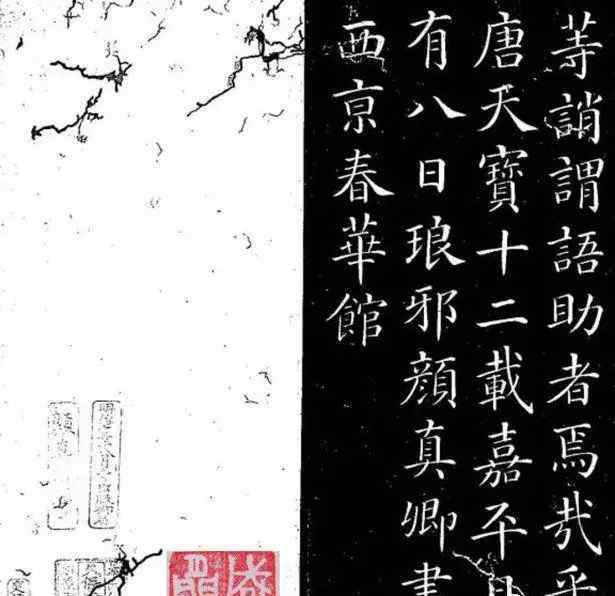 等誚謂語助者焉哉乎
唐天寶十二載嘉平月
有八日琅邪顏真卿書
西亰春華館